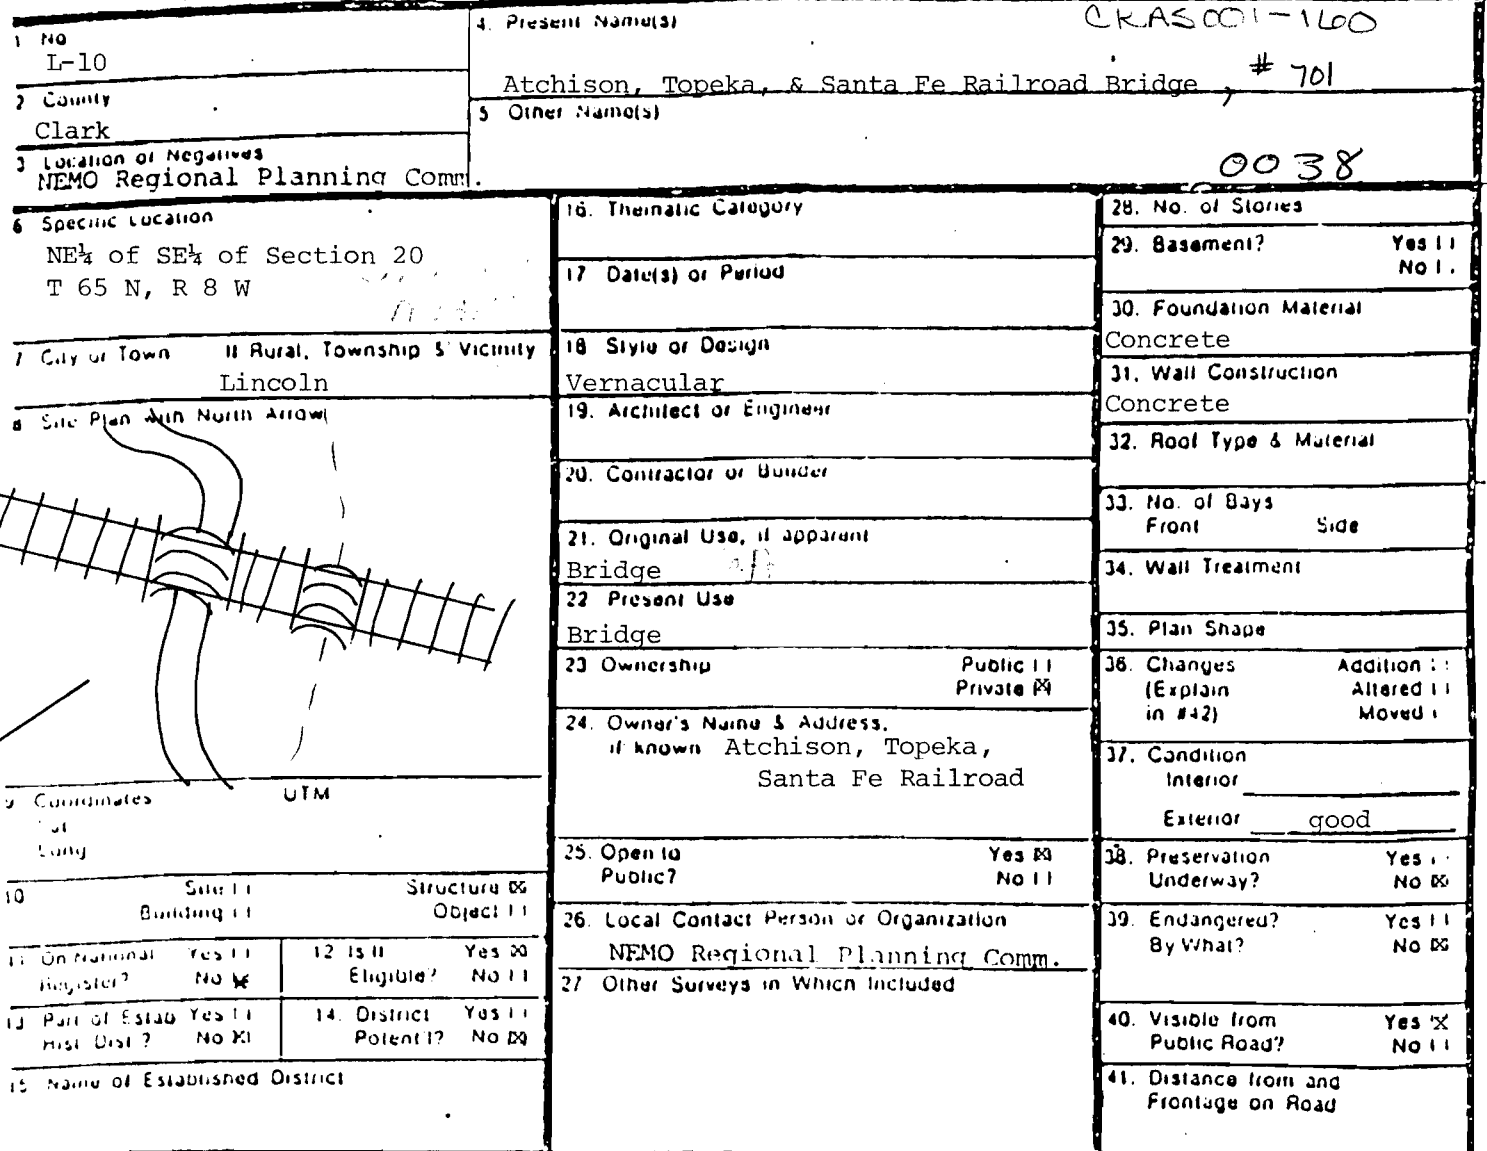 1 No
L-10
2 County
Clark
3 Location of Negatives
NEMO Regional Planning Comm.
4. Present Name(s)
CKAS001-160
Atchison, Topeka, & Santa Fe Railroad Bridge, # 701
5 Other Name(s)
0038
6 Specific Location
NE¼ of SE¼ of Section 20
T 65 N, R 8 W
7 City or Town If Rural, Township & Vicinity
Lincoln
8 Site Plan with North Arrow
9 Coordinates UTM
Lat
Long
10 Site
Structure
Building
Object
11 On National Register? Yes No
12 Is It Eligible? Yes No
13 Part of Estab Hist Dist? Yes No
14. District Potent'l? Yes No
15 Name of Established District
16. Thematic Category
17 Date(s) or Period
18 Style or Design
Vernacular
19. Architect or Engineer
20. Contractor or Builder
21. Original Use, if apparent
Bridge
22 Present Use
Bridge
23 Ownership Public
Private
24. Owner's Name & Address,
if known Atchison, Topeka,
Santa Fe Railroad
25. Open to Yes
Public? No
26. Local Contact Person or Organization
NEMO Regional Planning Comm.
27 Other Surveys in Which Included
28. No. of Stories
29. Basement? Yes
No
30. Foundation Material
Concrete
31. Wall Construction
Concrete
32. Roof Type & Material
33. No. of Bays
Front Side
34. Wall Treatment
35. Plan Shape
36. Changes Addition
(Explain Altered
in #42) Moved
37. Condition
Interior
Exterior good
38. Preservation Yes
Underway? No
39. Endangered? Yes
By What? No
40. Visible from Yes
Public Road? No
41. Distance from and
Frontage on Road